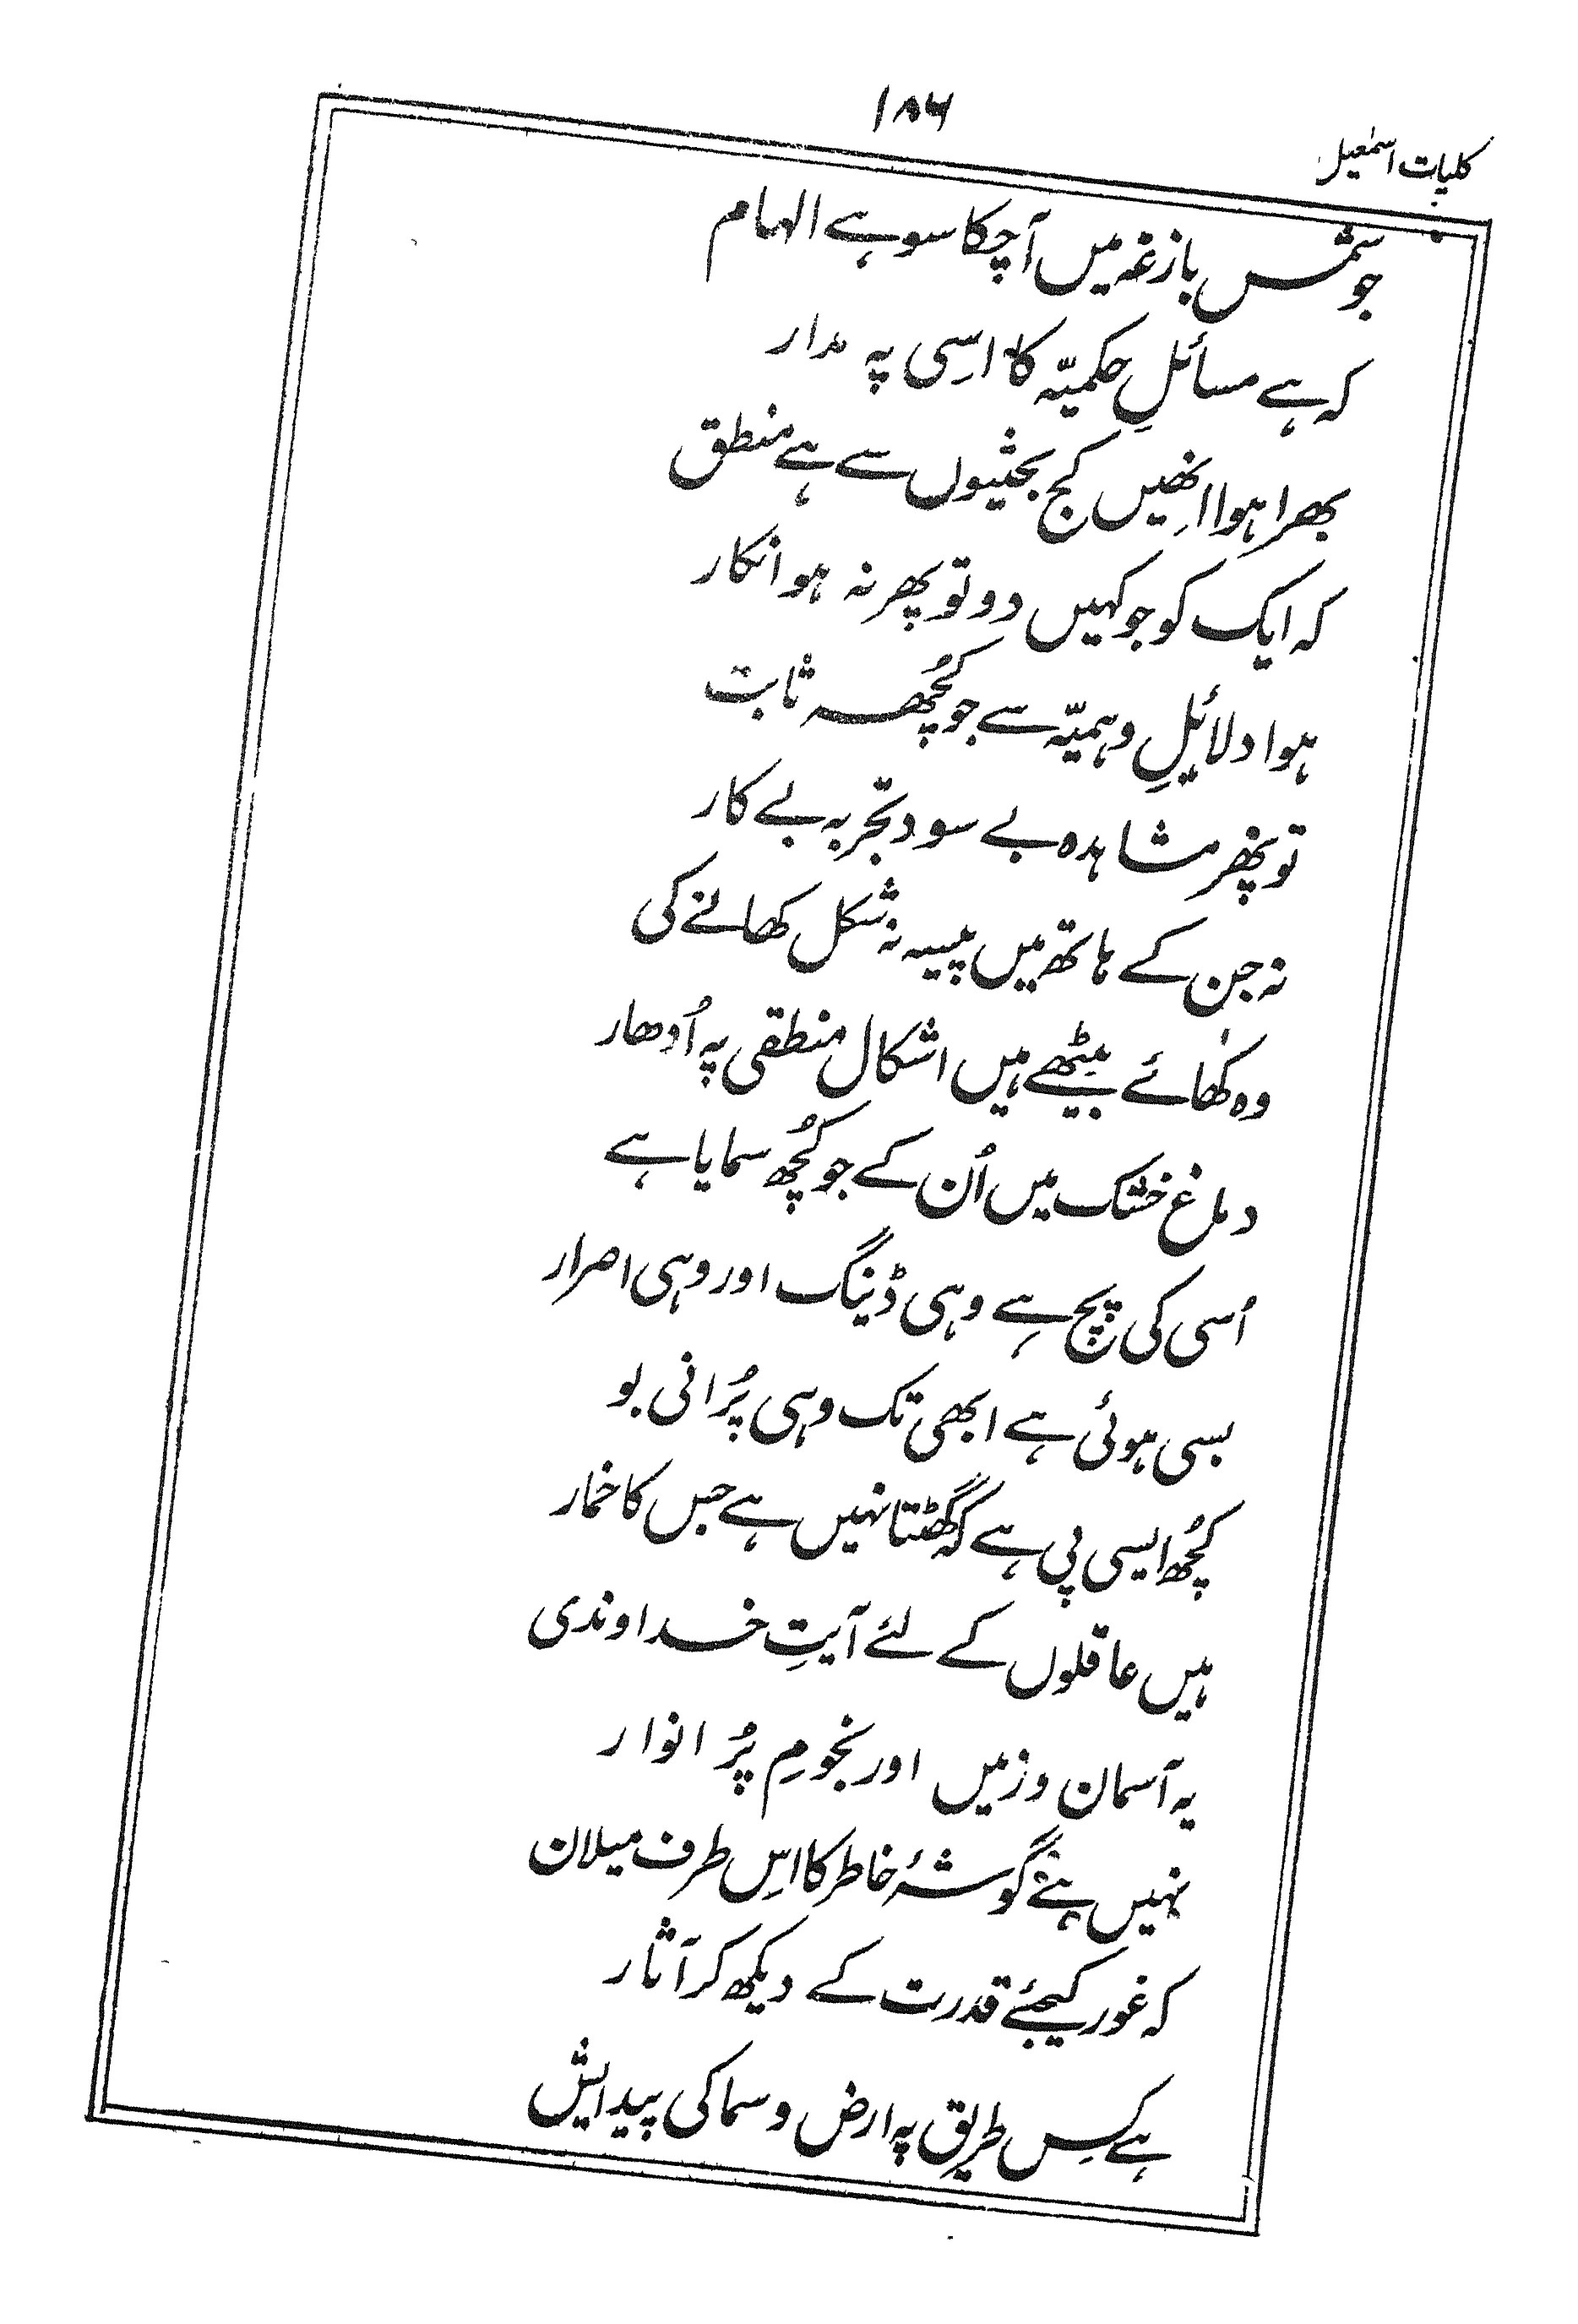 ۱۸۶
کلیات اسمٰعیل
جو شمس بازغہ میں آچکا سو ہے الہام
کہ ہے مسائلِ حکمیّہ کا اسِی پہ مدار
بھرا ہوا انِھیں کج بحثیوں سے ہے منطق
کہ ایک کو جو کہیں دو تو پھر نہ ہو انکار
ہوا دلائیلِ وہمیّہ سے جو کُچھ ثابت
تو پھر مشاہدہ بے سود تجربہ بے کار
نہ جن کے ہاتھ میں پیسیہ نہ شکل کھانے کی
وہ کھائے بیٹھے ہیں اشکال منطقی پہ اُدھار
دماغ خشک میں اُن کے جو کُچھ سمایا ہے
اُسی کی پچ ہے وہی ڈینگ اور وہی اصرار
بسی ہوئی ہے ابھی تک وہی پُرانی بو
کُچھ ایسی پی ہے کہ گھٹتا نہیں ہے جس کا خمار
ہیں عاقلوں کے لئے آیتِ خداوندی
یہ آسمان و زمیں اور نجومِ پُر انوار
نہیں ہے گوشۂ خاطر کا اسِ طرف میلان
کہ غور کیجئے قدرت کے دیکھ کر آثار
ہے کسِ طریق پہ ارض و سما کی پیدایش